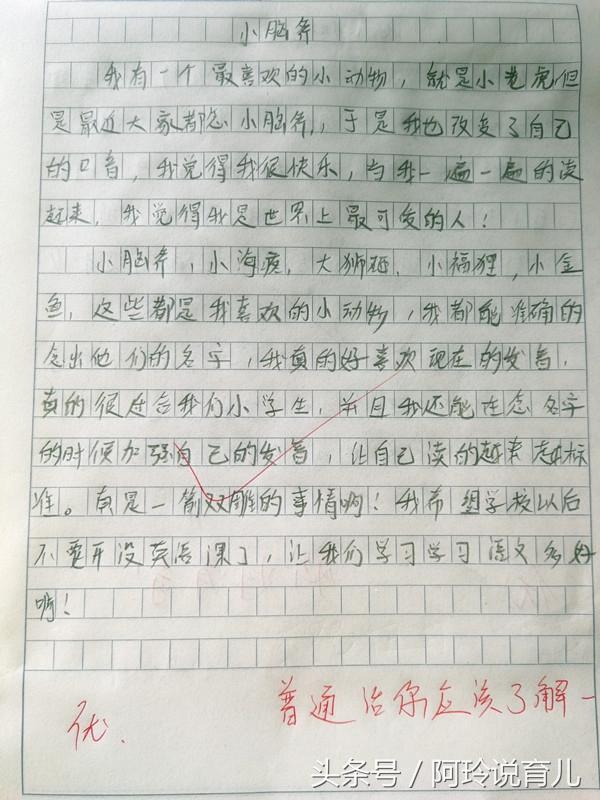 小脑斧
我有一个最喜欢的小动物，就是小老虎，但
是最近大家都念小脑斧，于是我也改变了自己
的口音，我觉得我很快乐，当我一遍一遍的读
起来，我觉得我是世界上最可爱的人！
小脑斧，小海疼，大狮砸，小福狸，小金
鱼，这些都是我喜欢的小动物，我都能准确的
念出他们的名字，我真的好喜欢现在的发音，
真的很适合我们小学生，并且我还能在念名字
的时候加强自己的发音，让自己读的越来越标
准。真是一箭双雕的事情啊！我希望学校以后
不要开设英语课了，让我们学习学习语文多好
啊！
优.
普通话你应该了解一
头条号／阿玲说育儿